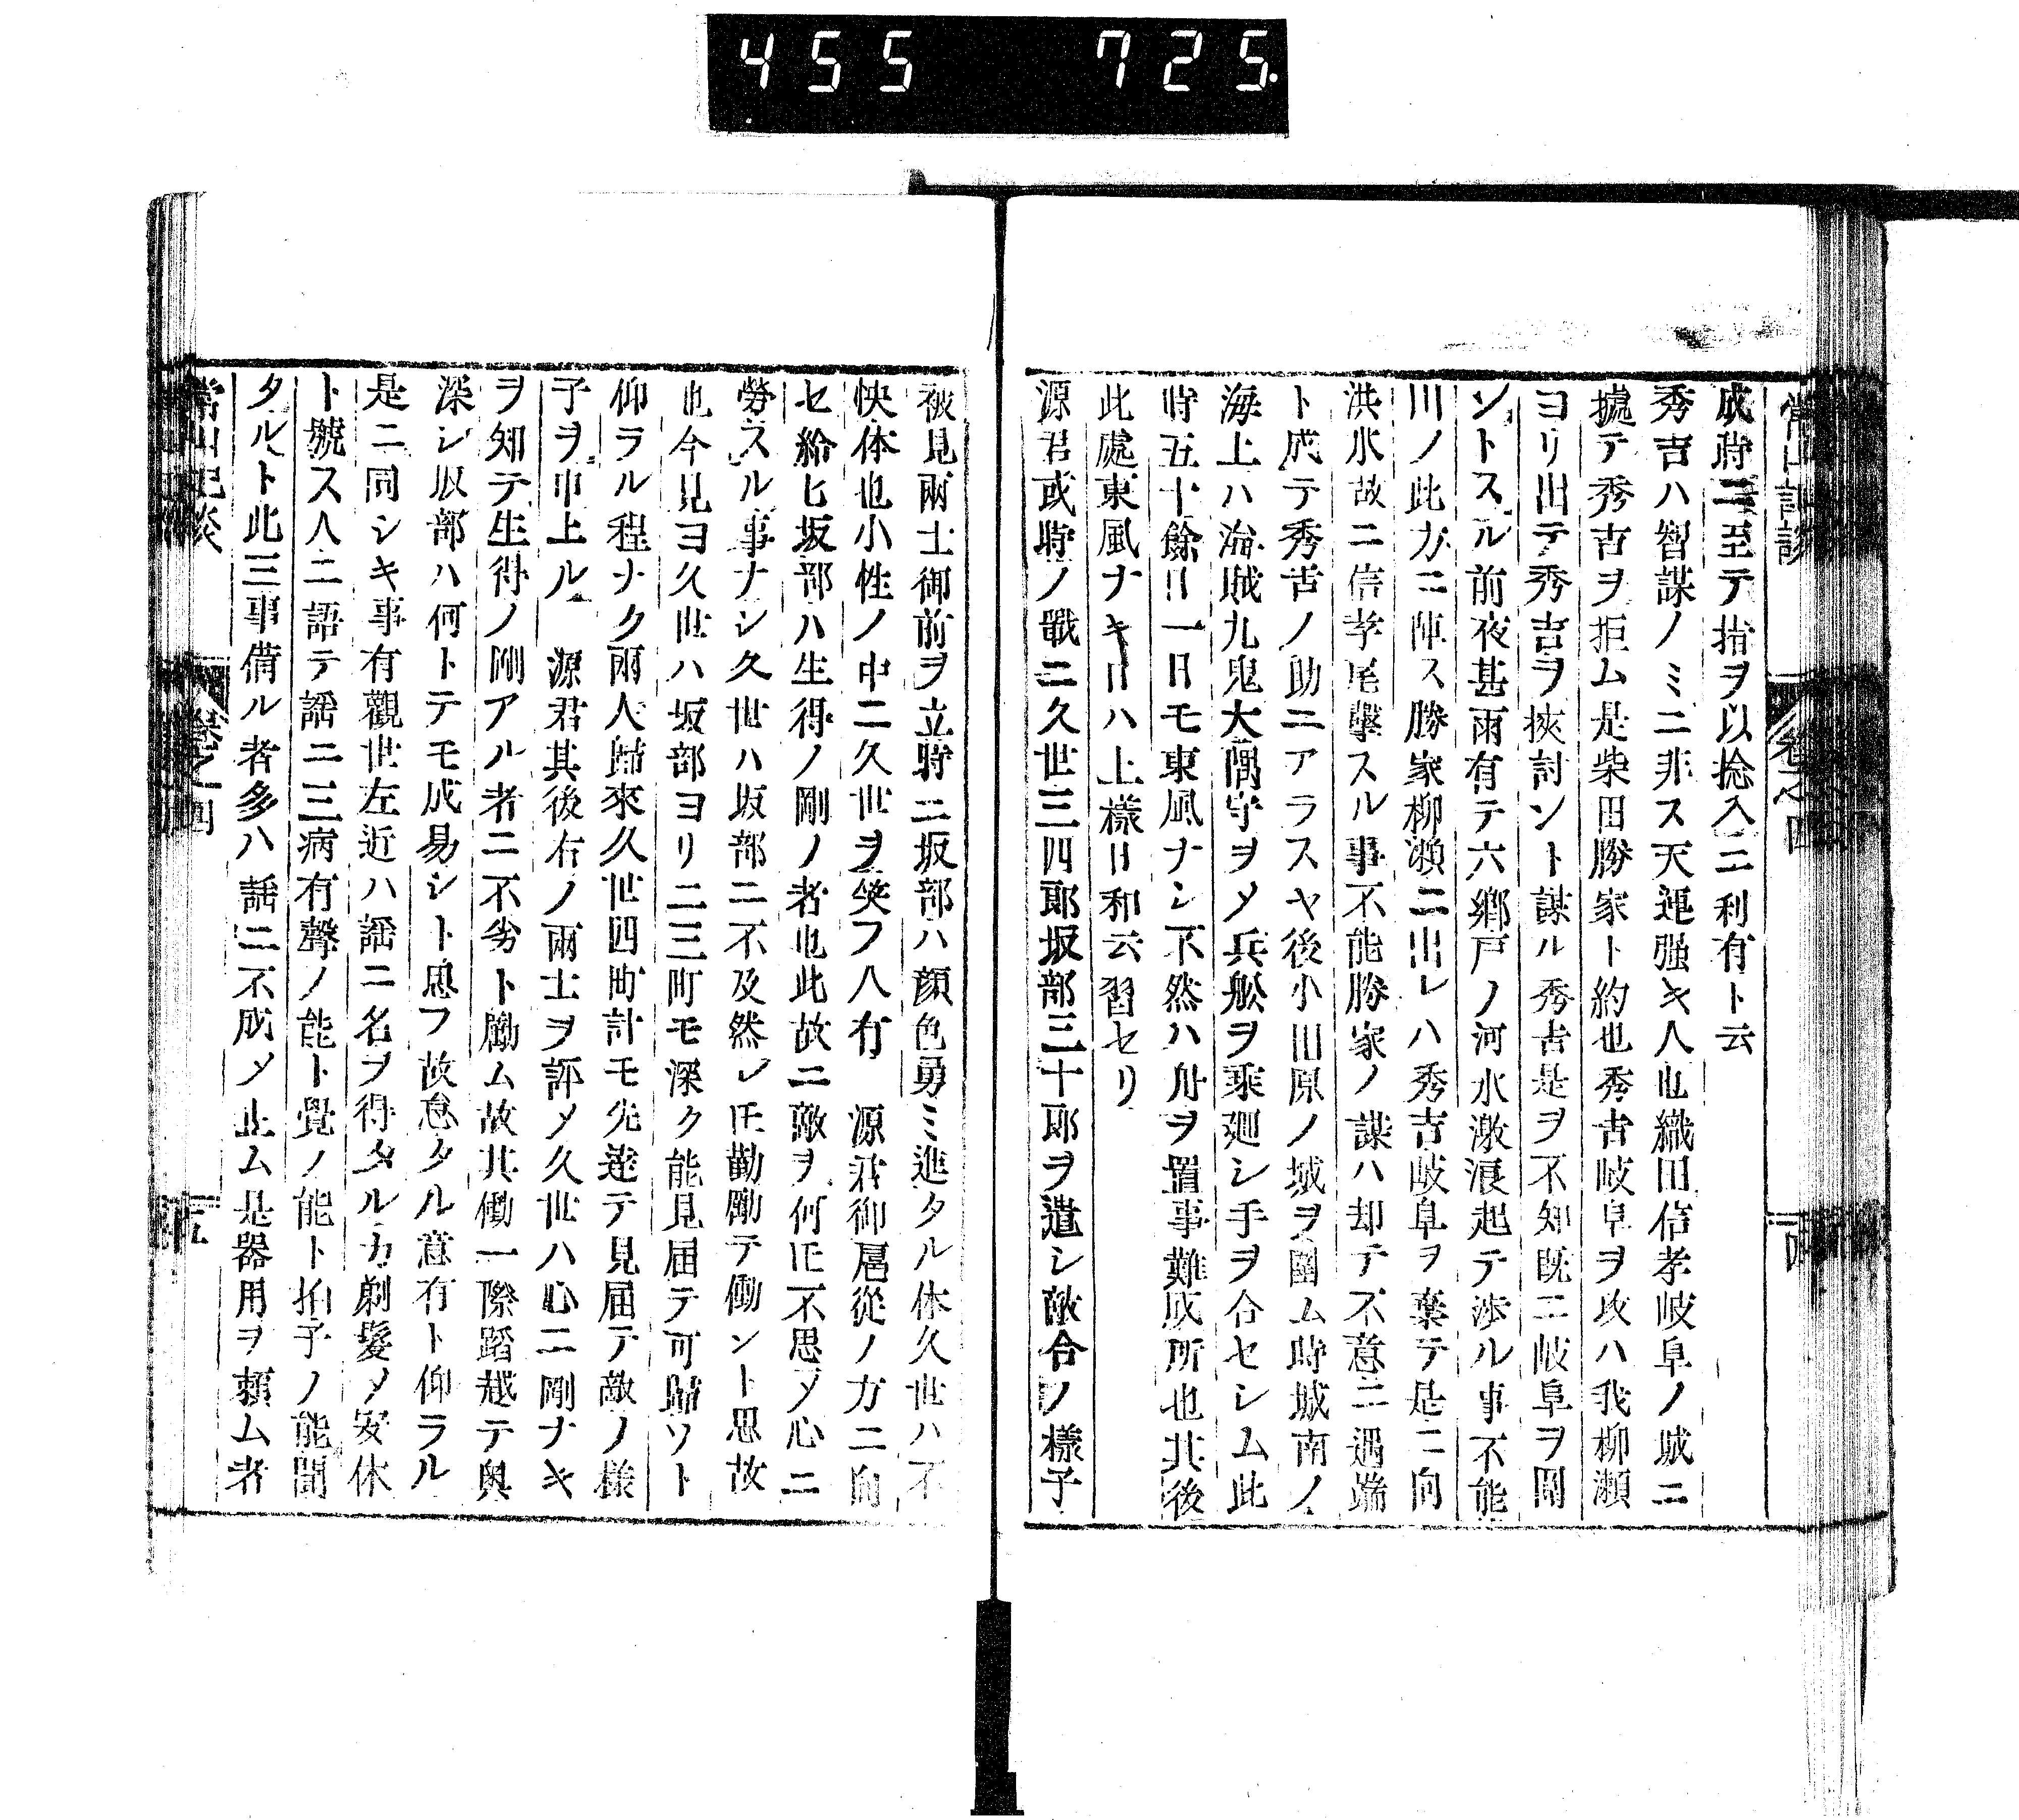 455 725.
成時ニ至テ指ヲ以捻入ニ利有ト云
秀吉ハ智謀ノミニ非ス天運强キ人也織田信孝岐阜ノ城ニ
據テ秀吉ヲ拒ム是柴田勝家ト約也秀吉岐阜ヲ攻ハ我柳瀬
ヨリ出テ秀吉ヲ挾討ント謀ル秀吉是ヲ不知既ニ岐阜ヲ圍
ントスル前夜甚雨有テ六鄕戸ノ河水激浪起テ渉ル事不能
川ノ此方ニ陣ス勝家柳瀬ニ出レハ秀吉岐阜ヲ棄テ是ニ向
洪水故ニ信孝尾擊スル事不能勝家ノ謀ハ却テ不意ニ遇端
ト成テ秀吉ノ助ニアラスヤ後小田原ノ城ヲ圍ム時城南ノ
海上ハ海賊九鬼大隅守ヲメ兵舩ヲ乘廻シ手ヲ合セシム此
時五十餘日一日モ東風ナシ不然ハ舟ヲ置事難成所也其後
此處東風ナキ日ハ上樣日和云習セリ
源君或時ノ戰ニ久世三四郎坂部三十郎ヲ遣シ敵合ノ樣子
被見兩士御前ヲ立時ニ坂部ハ顔色勇ミ進タル体久世ハ不
快体也小性ノ中ニ久世ヲ笑フ人有　源君御扈從ノ方ニ向
セ給ヒ坂部ハ生得ノ剛ノ者也此故ニ敵ヲ何𪜈不思メ心ニ
勞スル事ナシ久世ハ坂部ニ不及然レ𪜈勸勵テ働ント思故
也今見ヨ久世ハ坂部ヨリ二三町モ深ク能見届テ可歸ソト
仰ラル程ナク兩人歸來久世四町計モ先達テ見届テ敵ノ樣
子ヲ申上ル　源君其後右ノ兩士ヲ評メ久世ハ心ニ剛ナキ
ヲ知テ生得ノ剛アル者ニ不劣ト勵ム故其働一際蹈越テ輿
深シ坂部ハ何トテモ成易シト思フ故怠タル意有ト仰ラル
是ニ同シキ事有觀世左近ハ謡ニ名ヲ得タルカ剃髮メ安休
ト號ス人ニ語テ謡ニ三病有聲ノ能ト覺ノ能ト拍子ノ能間
タルト此三事備ル者多ハ謡ニ不成メ止ム是器用ヲ頼ム者
常山紀談　卷之四　五